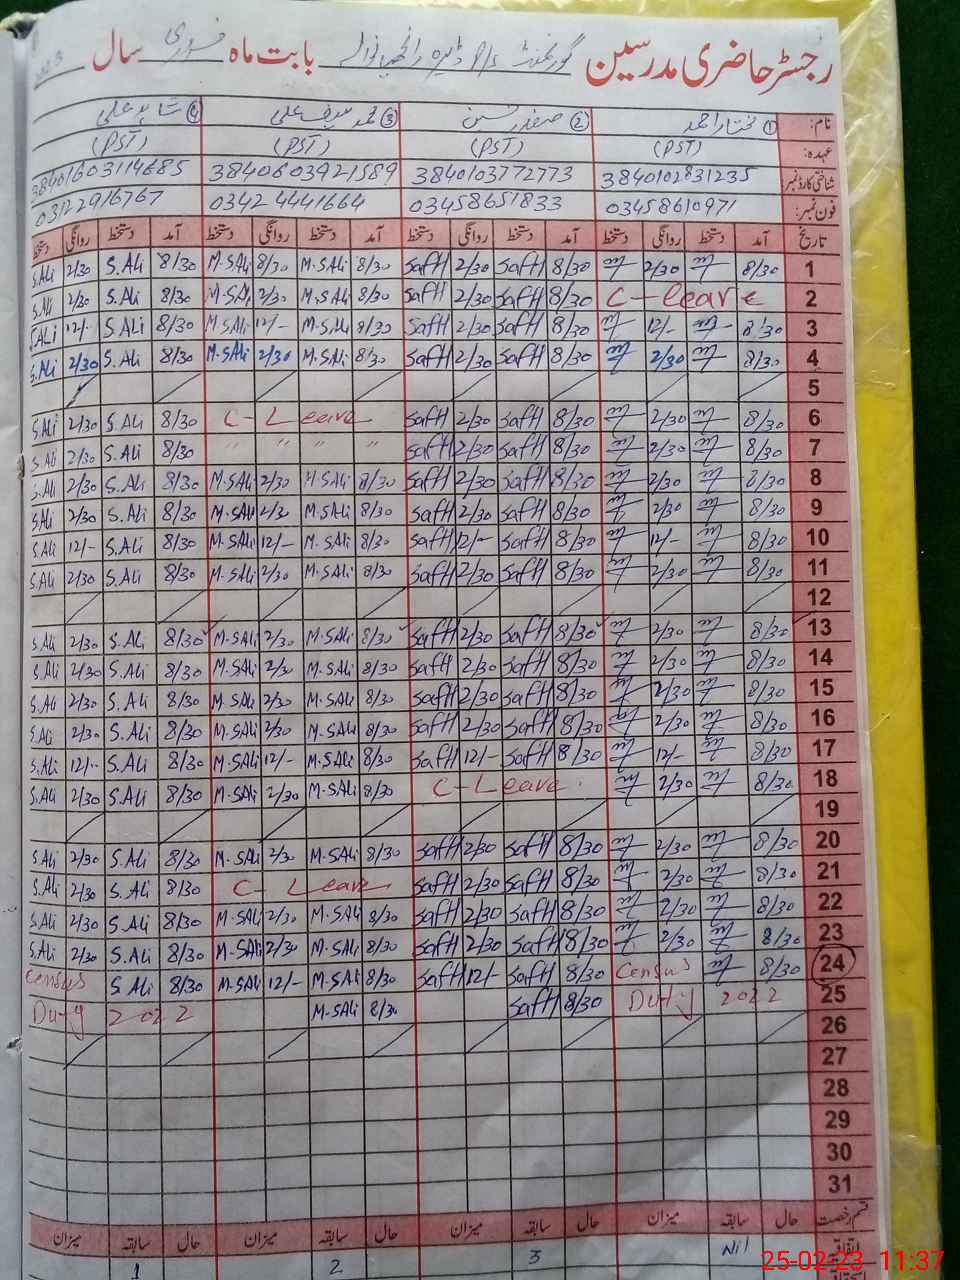 رجسٹر حاضری مدرسین گورنمنٹ P/S ڈیرہ رانجھیانوالہ بابت ماہ فروری سال
نام: ① مختار احمد ② صفدر حسین ③ محمد سیف علی ④ شاہد علی
عہدہ: (PST) (PST) (PST) (PST)
شناختی کارڈ نمبر 3840102831235 3840103772773 3840603921589 38401603114685
فون نمبر: 03458610971 03458651833 0342 4441664 03122916767
تاریخ آمد دستخط روانگی دستخط آمد دستخط روانگی دستخط آمد دستخط روانگی دستخط آمد دستخط روانگی دستخط
1 8/30 2/30 8/30 SafH 2/30 SafH 8/30 M.SAli 8/30 M.SAli 8/30 S.Ali 2/30 S.Ali
2 C-leave 8/30 SafH 2/30 SafH 8/30 M.SAli 2/30 M.SAli 8/30 S.Ali 2/30 S.Ali
3 8/30 12/- 8/30 SafH 2/30 SafH 8/30 M.SAli 12/- M.SAli 8/30 S.ALi 12/- S.ALi
4 8/30 2/30 8/30 SafH 2/30 SafH 8/30 M.SAli 2/30 M.SAli 8/30 S.Ali 2/30 S.Ali
5
6 8/30 2/30 8/30 SafH 2/30 SafH C-Leave 8/30 S.Ali 2/30 S.Ali
7 8/30 2/30 8/30 SafH 2/30 SafH " " " " 8/30 S.Ali 2/30 S.Ali
8 8/30 2/30 8/30 SafH 2/30 SafH 8/30 M.SAli 2/30 M.SAli 8/30 S.Ali 2/30 S.Ali
9 8/30 2/30 8/30 SafH 2/30 SafH 8/30 M.SAli 2/30 M.SAli 8/30 S.Ali 2/30 S.Ali
10 8/30 12/- 8/30 SafH 12/- SafH 8/30 M.SAli 12/- M.SAli 8/30 S.Ali 12/- S.Ali
11 8/30 2/30 8/30 SafH 2/30 SafH 8/30 M.SAli 2/30 M.SAli 8/30 S.Ali 2/30 S.Ali
12
13 8/30 2/30 8/30 SafH 2/30 SafH 8/30 M.SAli 2/30 M.SAli 8/30 S.Ali 2/30 S.Ali
14 8/30 2/30 8/30 SafH 2/30 SafH 8/30 M.SAli 2/30 M.SAli 8/30 S.Ali 2/30 S.Ali
15 8/30 2/30 8/30 SafH 2/30 SafH 8/30 M.SAli 2/30 M.SAli 8/30 S.Ali 2/30 S.Ali
16 8/30 2/30 8/30 SafH 2/30 SafH 8/30 M.SAli 2/30 M.SAli 8/30 S.Ali 2/30 S.Ali
17 8/30 12/- 8/30 SafH 12/- SafH 8/30 M.SAli 12/- M.SAli 8/30 S.Ali 12/- S.Ali
18 8/30 2/30 C-Leave 8/30 M.SAli 2/30 M.SAli 8/30 S.Ali 2/30 S.Ali
19
20 8/30 2/30 8/30 SafH 2/30 SafH 8/30 M.SAli 2/30 M.SAli 8/30 S.Ali 2/30 S.Ali
21 8/30 2/30 8/30 SafH 2/30 SafH C-Leave 8/30 S.Ali 2/30 S.Ali
22 8/30 2/30 8/30 SafH 2/30 SafH 8/30 M.SAli 2/30 M.SAli 8/30 S.Ali 2/30 S.Ali
23 8/30 2/30 8/30 SafH 2/30 SafH 8/30 M.SAli 2/30 M.SAli 8/30 S.Ali 2/30 S.Ali
24 8/30 Census 8/30 SafH 12/- SafH 8/30 M.SAli 12/- M.SAli 8/30 S.Ali Census
25 Duty 2022 8/30 SafH 8/30 M.SAli Duty 2022
26
27
28
29
30
31
قسم رخصت حال سابقہ میزان حال سابقہ میزان حال سابقہ میزان حال سابقہ میزان
اتفاقیہ Nil 3 2 1
25-02-23 11:37